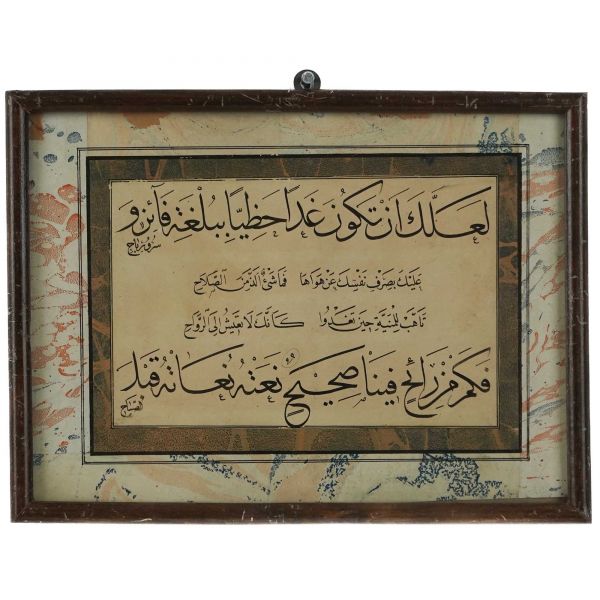 لعلك ان تكون غدا حظيا ببلغة فائز و
سرور ناج
عليك بصرف نفسك عن هواها فما شئ الذ من الصلاح
تاهب للمنية حين تغدوا كانك لا تعيش الى الرواح
فكم من رائح فينا صحيح نعته نعاته قبل
الصباح